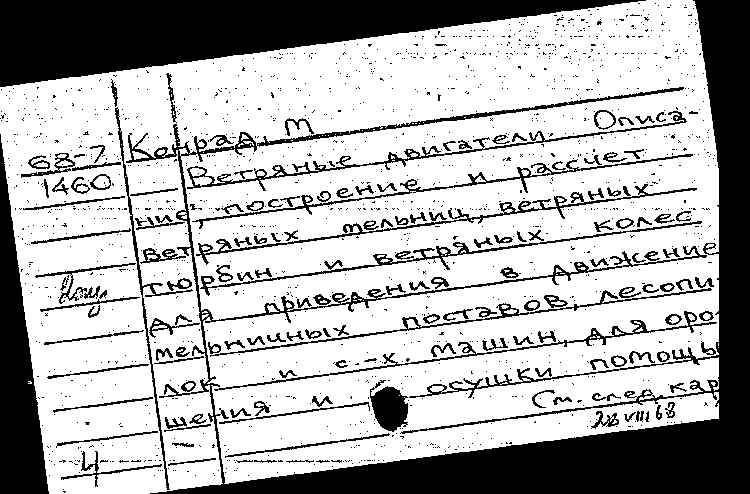 68-7
1460
Конрад, М
Ветряные двигатели. Описа-
ние, построение и рассчет
ветряных мельниц, ветряных
тюрбин и ветряных колес
для приведения в движение
мельничных поставов, лесопи-
лок и с.-х. машин, для оро-
шения и осушки помощью
См. след. кар
28 VIII 68
4